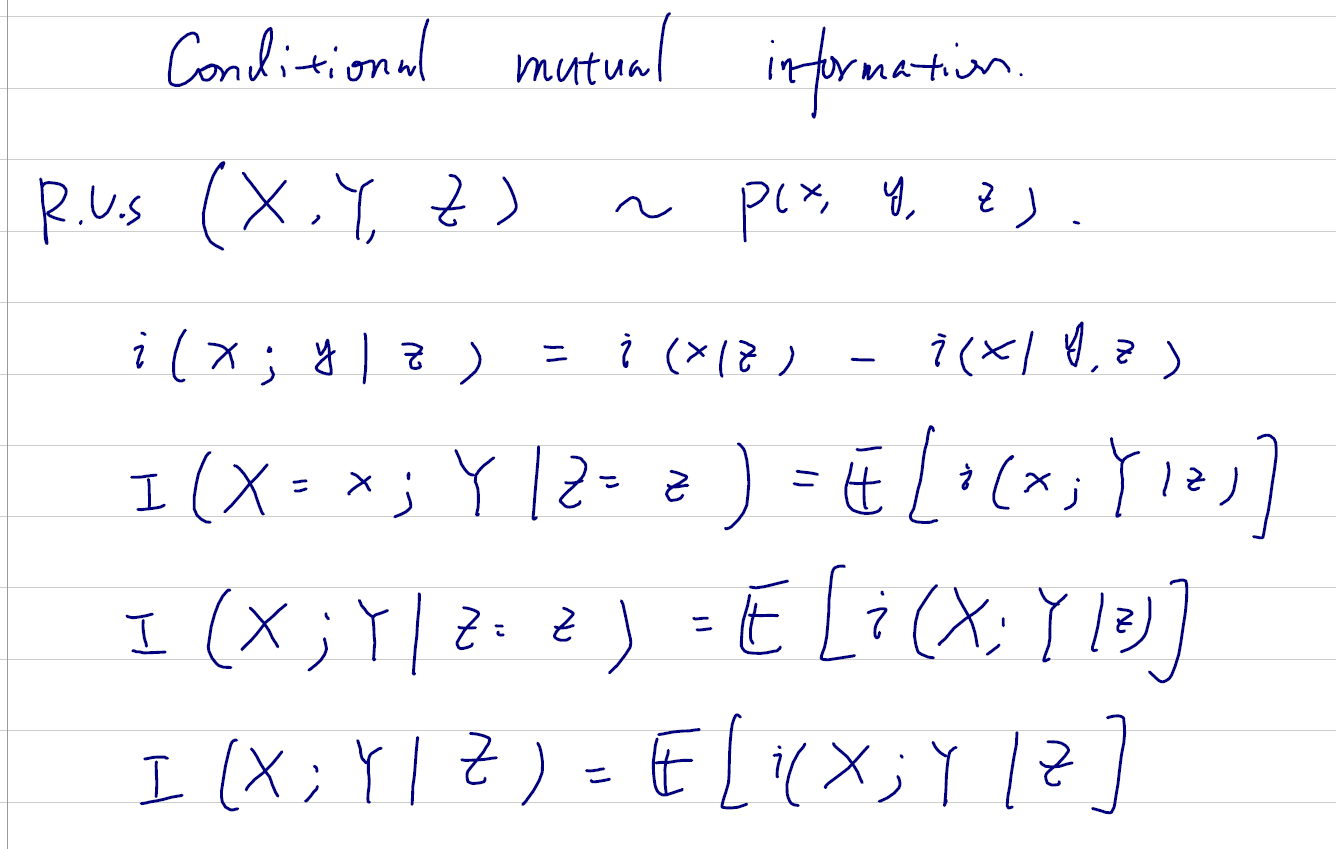 Conditional mutual information.
R.V.s (X, Y, Z) ~ p(x, y, z).
i(x; y | z) = i(x|z) - i(x| y, z)
I(X = x; Y | Z = z) = 𝔼[i(x; Y | z)]
I(X; Y | Z = z) = 𝔼[i(X; Y | z)]
I(X; Y | Z) = 𝔼[i(X; Y | Z]